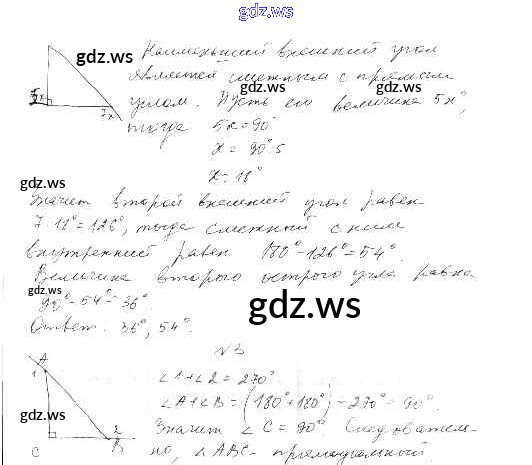 gdz.ws
Наименьший внешний угол
gdz.ws
является смежным с прямым
gdz.ws
5x
7x
углом. Пусть его величина 5x°,
тогда 5x = 90°
x = 90° : 5
gdz.ws
x = 18°
gdz.ws
Значит второй внешний угол равен
7 · 18° = 126°, тогда смежный с ним
внутренний равен 180° - 126° = 54°.
Величина второго острого угла равна
gdz.ws
90° - 54° = 36°.
gdz.ws
Ответ: 36°, 54°.
N 3
A
1
∠1 + ∠2 = 270°
∠A + ∠B = (180° + 180°) - 270° = 90°.
gdz.ws
gdz.ws
Значит ∠C = 90°. Следователь-
2
C
B
но, ∠ABC - прямоугольный.